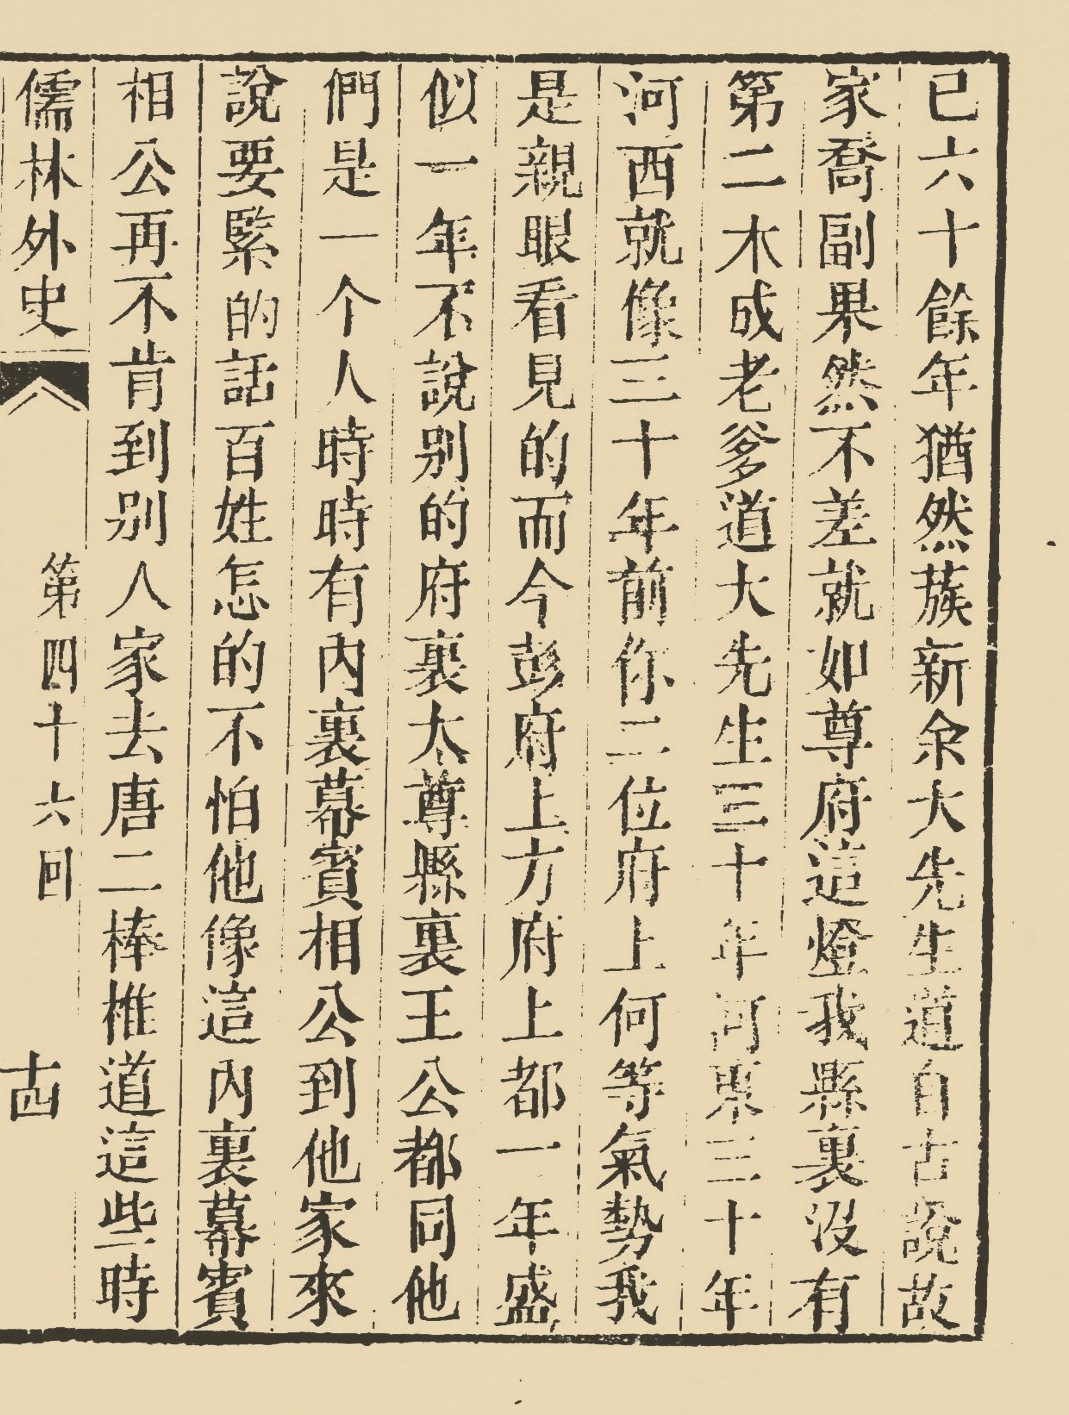 已六十餘年猶然蔟新余大先生道自古說故
家喬副果然不差就如尊府這燈我縣裏沒有
第二木成老爹道大先生三十年河東三十年
河西就像三十年前你二位府上何等氣勢我
是親眼看見的而今彭府上方府上都一年盛
似一年不說别的府裏太尊縣裏王公都同他
們是一个人時時有內裏幕賓相公到他家來
說要緊的話百姓怎的不怕他像這內裏幕賓
相公再不肯到别人家去唐二棒椎道這些時
儒林外史
第四十六回
十四